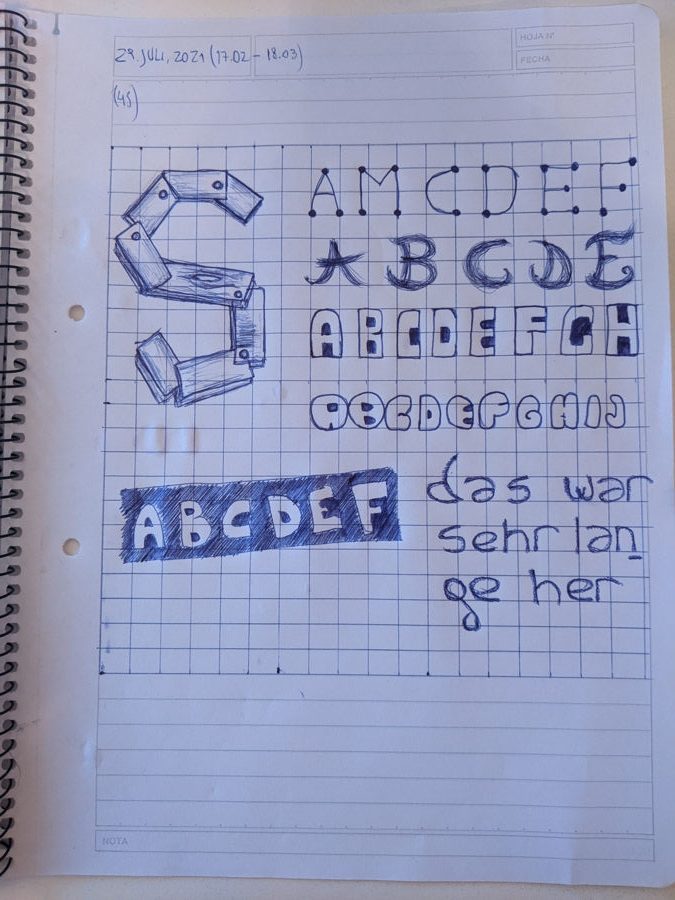 HOJA N°
29. JULI, 2021 (17.02 - 18.03)
FECHA
(45)
S
A M C D E F
A B C D E
A B C D E F G H
A B C D E F G H I J
A B C D E F
das war
sehr lan
ge her
NOTA